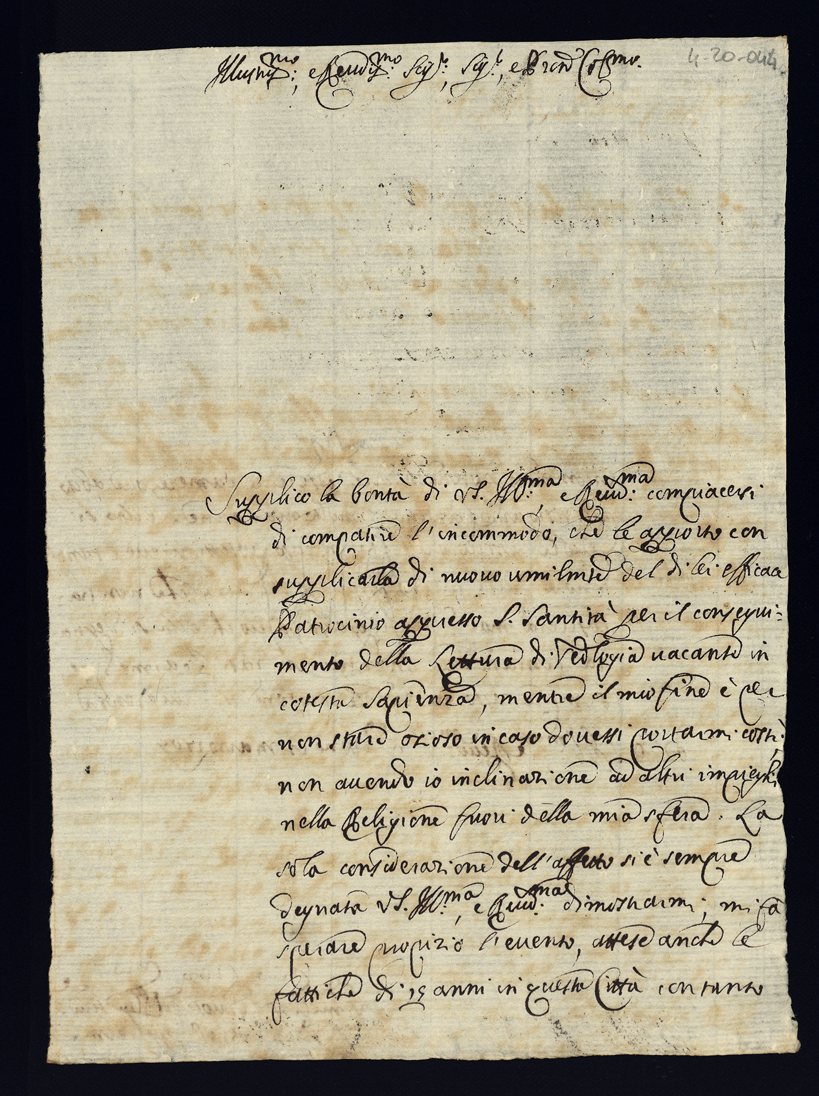 4-20-044
Illustri.mo, e Reud.mo Sig.r, Sig.r, e Pron Col.mo
Supplico la bontà di VS. Ill.ma, e Reud.ma compiacersi
di compatire l'incommodo, che le apporto con
supplicarla di nuovo umilmte del di lei efficace
Patrocinio appresso S. Santità per il consegui=
mento della Lettura di Teologia vacante in
cotesta Sapienza, mentre il mio fine è per
non stare ozioso in caso dovessi portarmi costì,
non avendo io inclinazione ad altri impieghi
nella Religione fuori della mia sfera. La
sola considerazione dell'affetto si è sempre
degnata VS. Ill.ma, e Reud.ma dimostrarmi, mi fà
sperare propizio l'evento, attese anche le
fattiche di 15 anni in questa Città con tanto